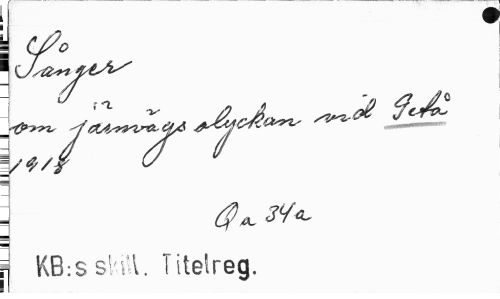 Sånger
om järnvägsolyckan vid Getå
1918
Qa 34a
KB:s skill. Titelreg.